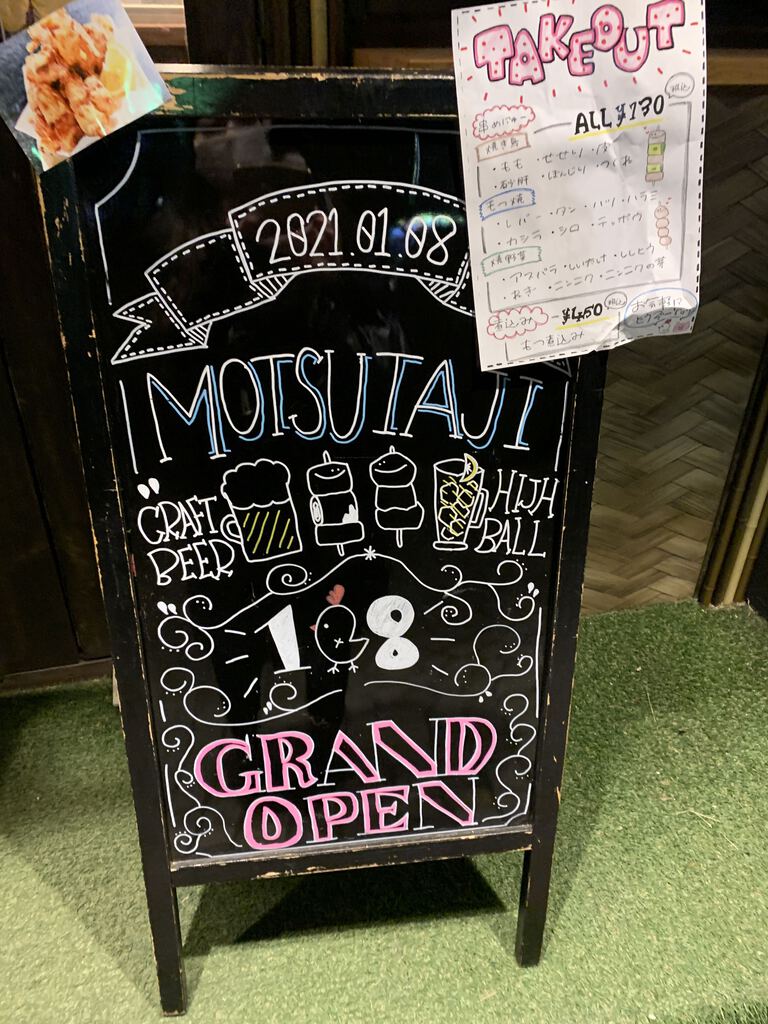 TAKEOUT
串めにゅー
ALL ¥130 税込
焼き鳥
・もも ・せせり ・皮
・砂肝 ・ぼんじり ・つくね
もつ焼
・レバー ・タン ・ハツ ・ハラミ
・カシラ ・シロ ・テッポウ
焼野菜
・アスパラ ・しいたけ ・ししとう
・ねぎ ・ニンニク ・ニンニクの芽
煮込み
税込
もつ煮込み
お気軽に
2021.01.08
MOTSUTAJI
"CRAFT
BEER
HIJH
BALL
"
1 8
GRAND
OPEN